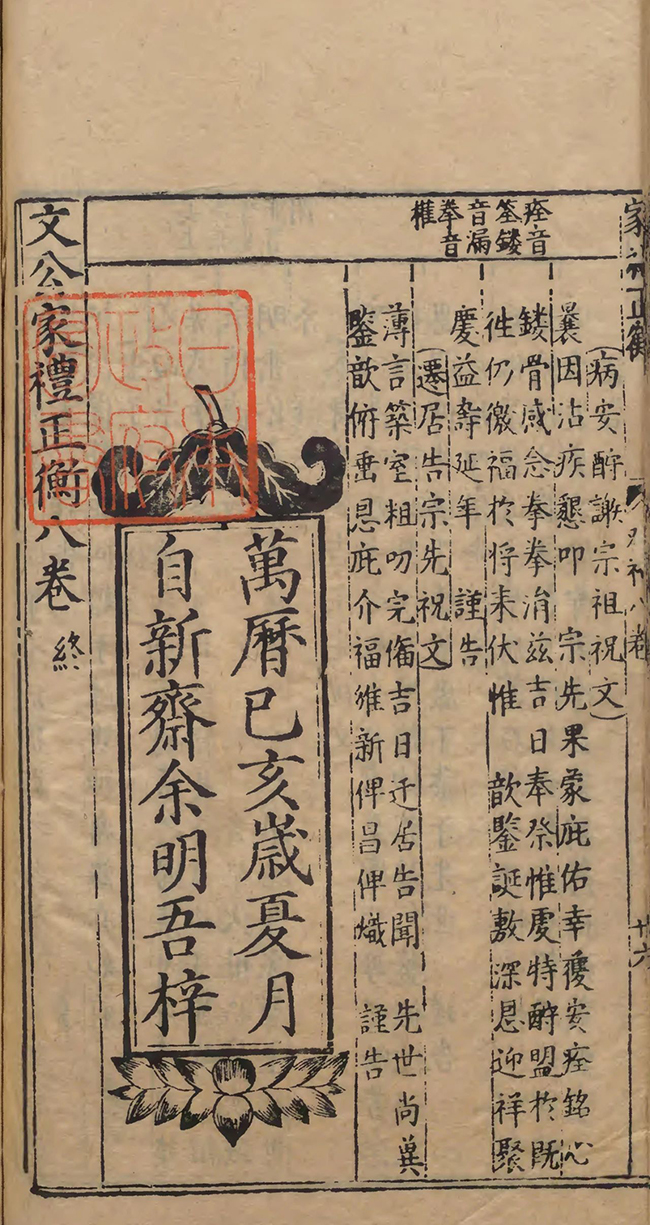 痊音
筌鏤
音漏
拳音
權
(病安酧謝宗祖祝文)
曩因沾疾懇叩　宗先果蒙庇佑幸獲安痊銘心
鏤骨感念拳拳涓茲吉日奉祭惟虔特酧盟於既
徃仍徼福於将来伏惟　歆鑒誕敷深恩迎祥聚
慶益壽延年　謹告
(遷居告宗先祝文)
薄言築室粗叻完俻吉日迁居告聞　先世尚兾
鑒歆俯垂恩庇介福維新俾昌俾熾　謹告
萬曆已亥歲夏月
自新齋余明吾梓
文公家禮正衡八卷 終